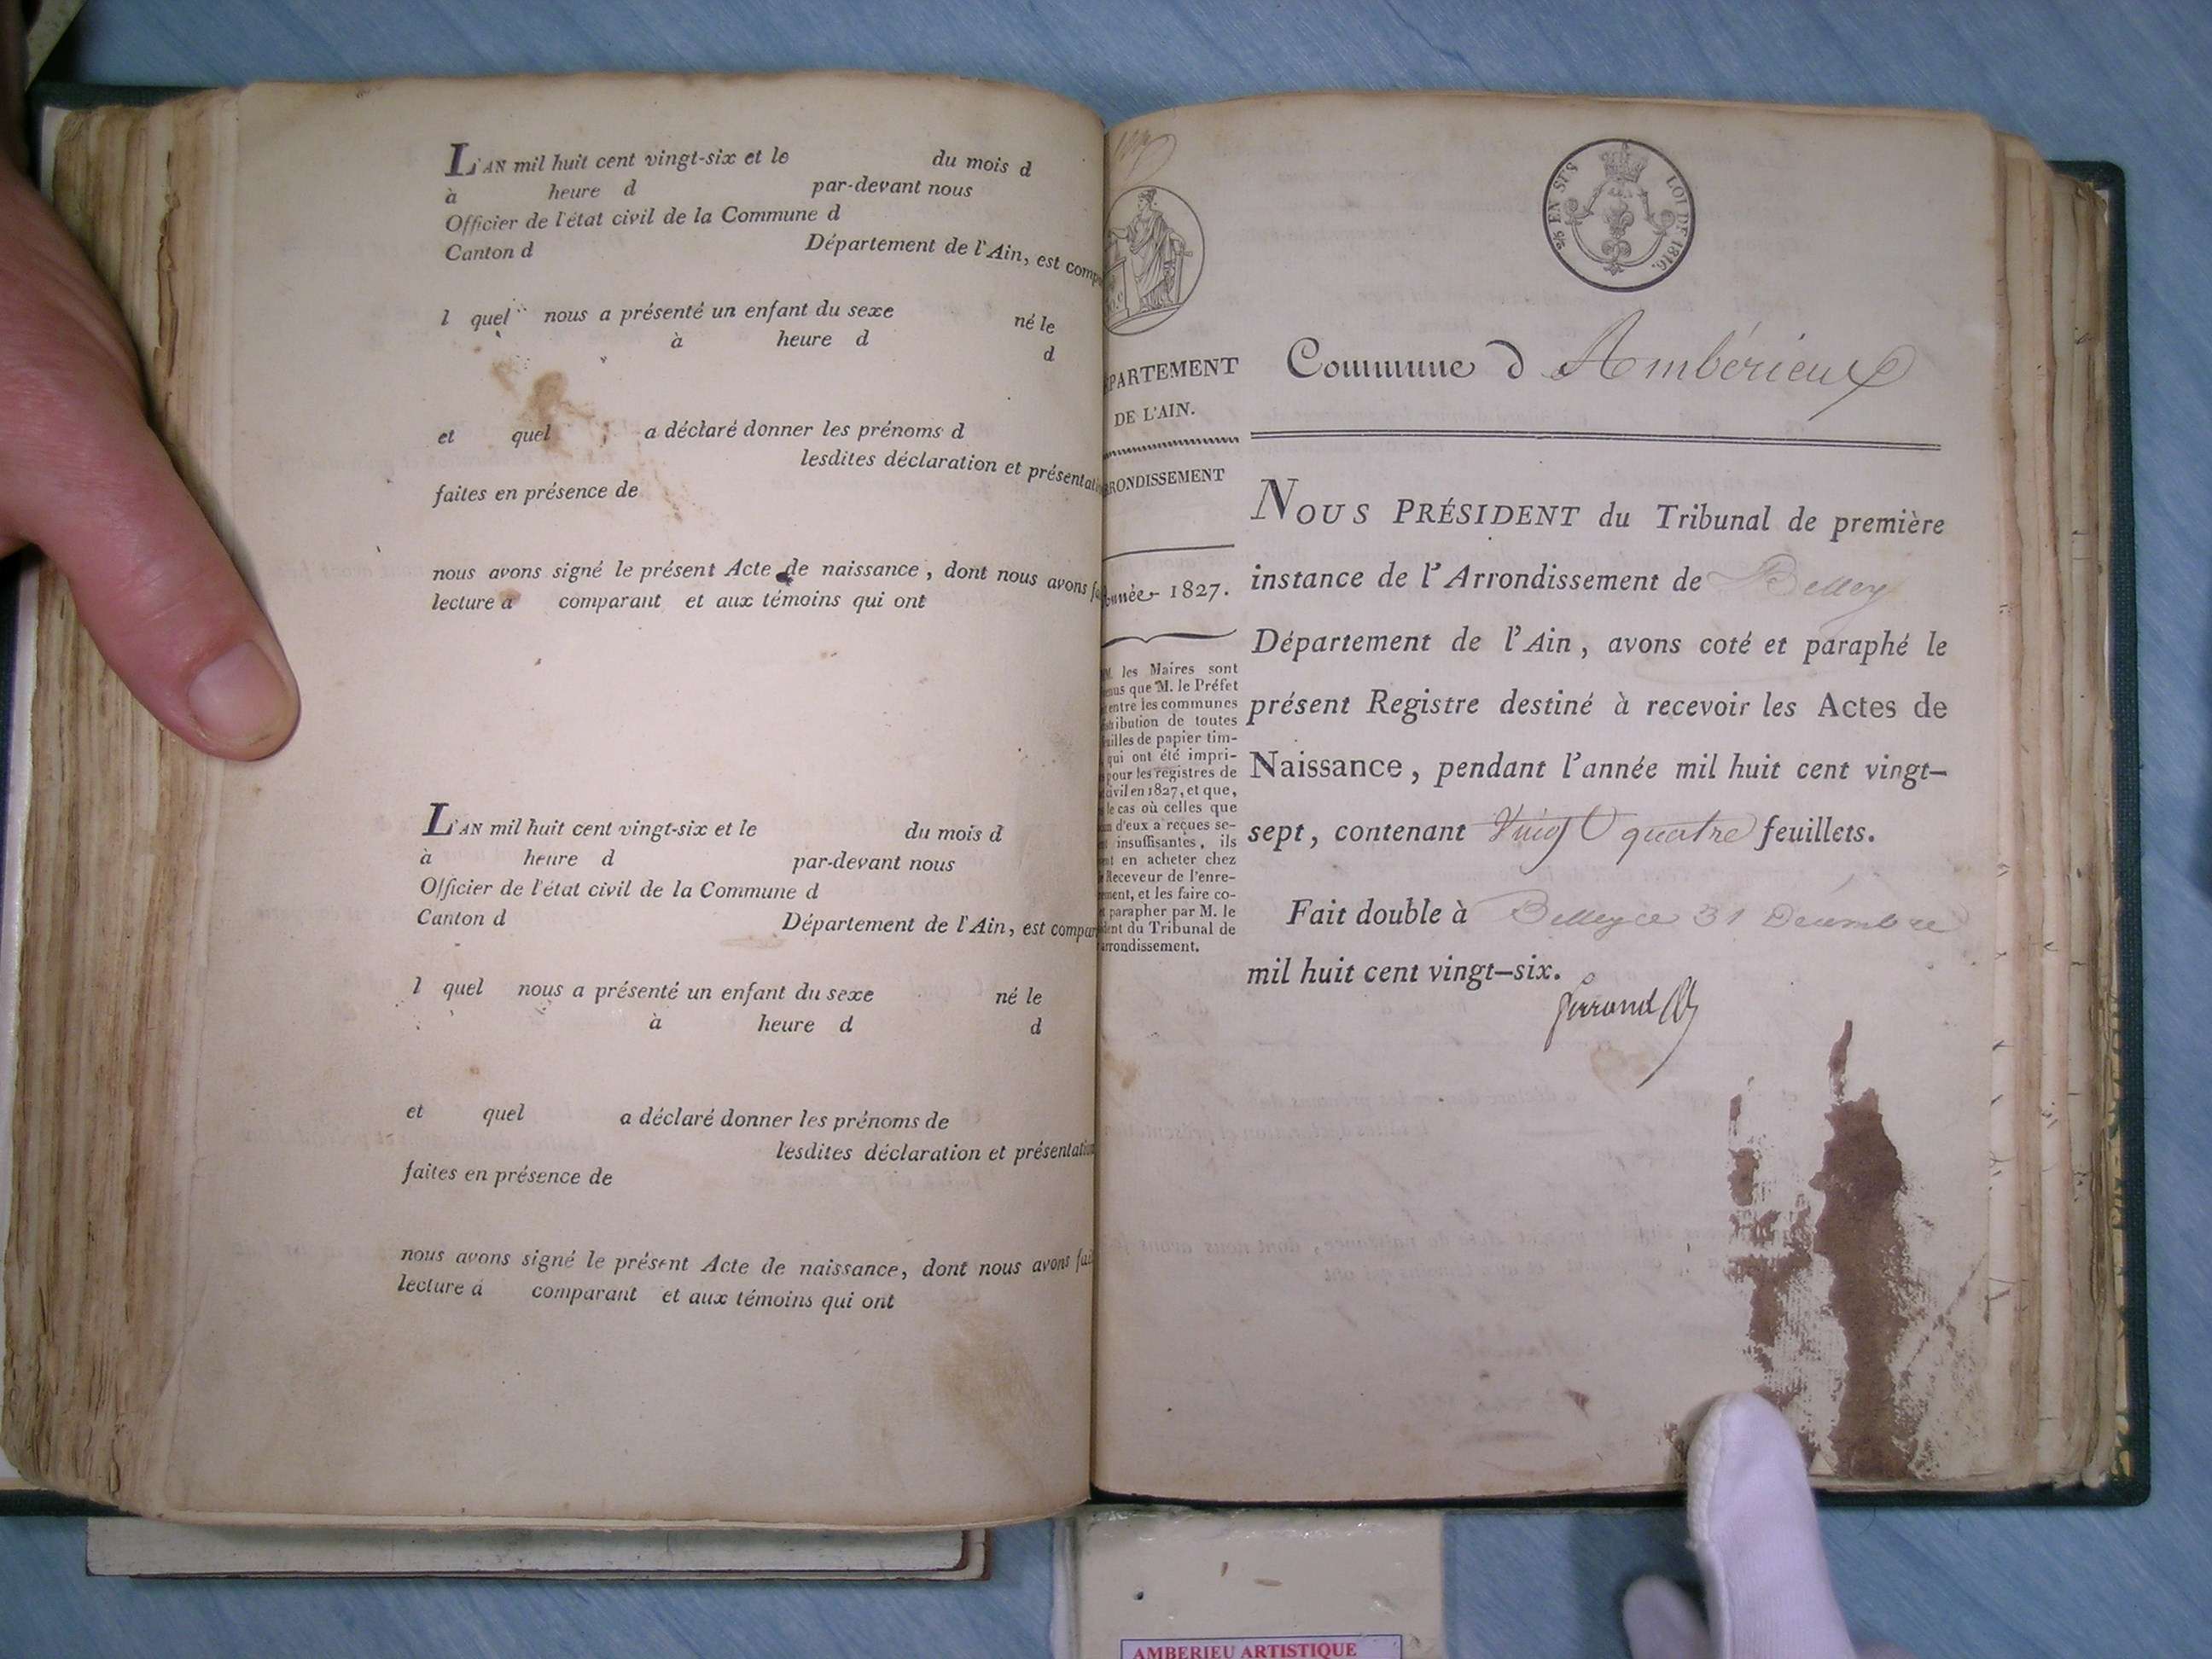 L'AN mil huit cent vingt-six et le du mois d
à heure d par-devant nous
Officier de l'état civil de la Commune d
Canton d Département de l'Ain, est comp
l quel nous a présenté un enfant du sexe né le
à heure d d
et quel a déclaré donner les prénoms d
lesdites déclaration et présentati
faites en présence de
nous avons signé le présent Acte de naissance, dont nous avons fa
lecture a comparant et aux témoins qui ont
L'AN mil huit cent vingt-six et le du mois d
à heure d par-devant nous
Officier de l'état civil de la Commune d
Canton d Département de l'Ain, est compar
l quel nous a présenté un enfant du sexe né le
à heure d d
et quel a déclaré donner les prénoms de
lesdites déclaration et présentation
faites en présence de
nous avons signé le présent Acte de naissance, dont nous avons fait
lecture à comparant et aux témoins qui ont
EN SUS LOI DE 1816.
PARTEMENT
DE L'AIN.
RONDISSEMENT
nnée 1827.
les Maires sont
nus que M. le Préfet
entre les communes
tribution de toutes
uilles de papier tim-
qui ont été impri-
pour les registres de
civil en 1827, et que,
le cas où celles que
n d'eux a reçues se-
insuffisantes, ils
nt en acheter chez
Receveur de l'enre-
ment, et les faire co-
parapher par M. le
dent du Tribunal de
arrondissement.
Commune d'Ambérieux
NOUS PRÉSIDENT du Tribunal de première
instance de l'Arrondissement de Belley
Département de l'Ain, avons coté et paraphé le
présent Registre destiné à recevoir les Actes de
Naissance, pendant l'année mil huit cent vingt-
sept, contenant Vingt quatre feuillets.
Fait double à Belley ce 31 Décembre
mil huit cent vingt-six.
AMBERIEU ARTISTIQUE